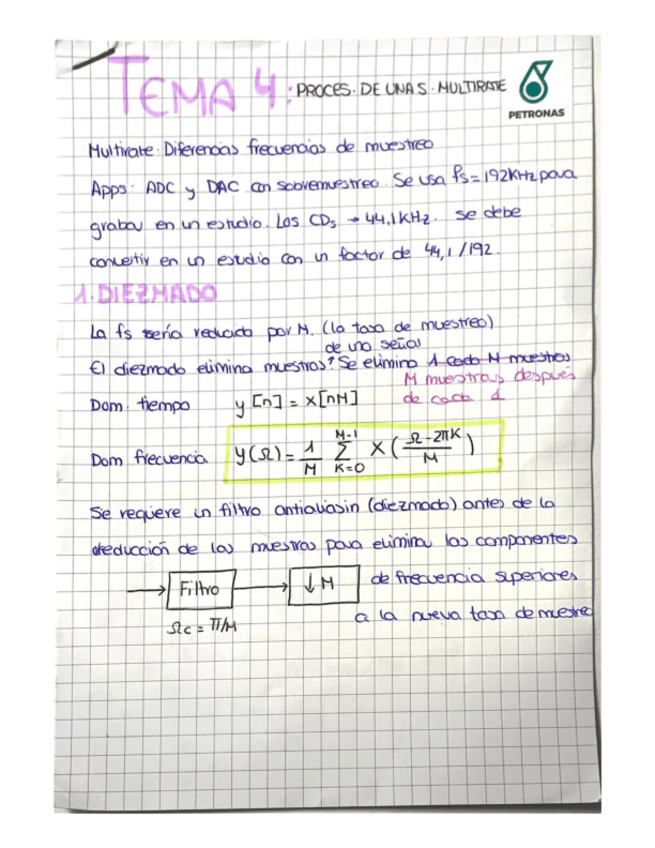 TEMA 4: PROCES. DE UNA S. MULTIRATE
PETRONAS
Multirate: Diferencias frecuencias de muestreo
Apps: ADC y DAC con sobremuestreo. Se usa fs=192KHz para
grabar en un estudio. Los CDs → 44,1KHz. se debe
convertir en un estudio con un factor de 44,1/192.
1.DIEZMADO
La fs sería reducido por M. (la tasa de muestreo)
de una señal
El diezmado elimina muestras↑ Se elimina 1 cada M muestras
M muestras después
Dom. tiempo y[n] = x[nM] de cada 1
Dom frecuencia Y(Ω) = 1/M Σ K=0 M-1 X((Ω-2πK)/M)
Se requiere un filtro antialiasin (diezmado) antes de la
reducción de las muestras para eliminar las componentes
→ Filtro → ↓M de frecuencia superiores
Ωc = π/M a la nueva tasa de muestre